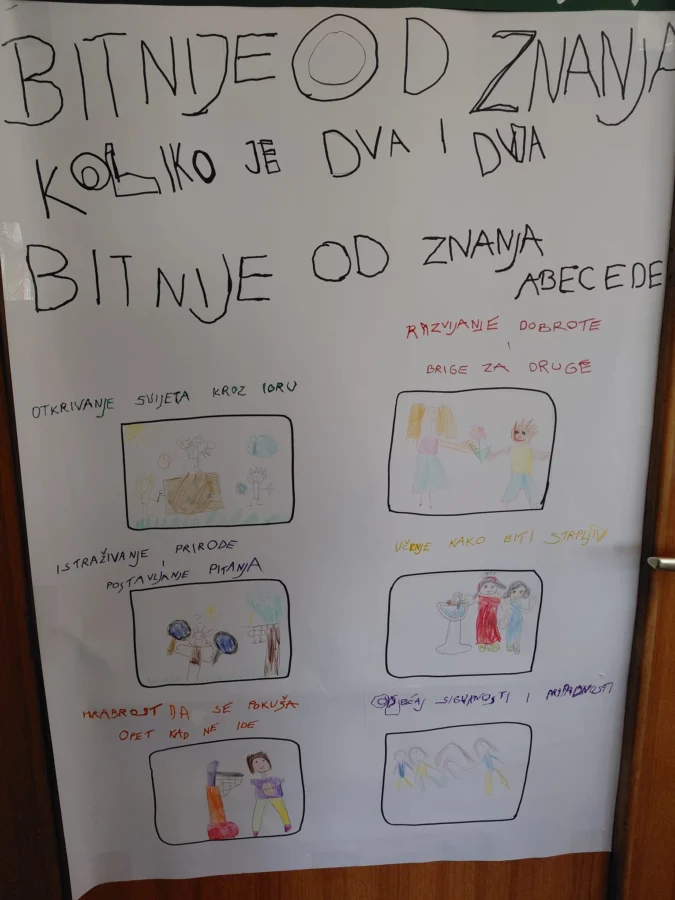 BITNIJE OD ZNANJA
KOLIKO JE DVA I DVA
BITNIJE OD ZNANJA
ABECEDE
OTKRIVANJE SVIJETA KROZ IGRU
ISTRAŽIVANJE I PRIRODE
POSTAVLJANJE PITANJA
HRABROST DA SE POKUŠA
OPET KAD NE IDE
RAZVIJANJE DOBROTE
I
BRIGE ZA DRUGE
UČENJE KAKO BITI STRPLJIV
OSJEĆAJ SIGURNOSTI I PRIPADNOSTI